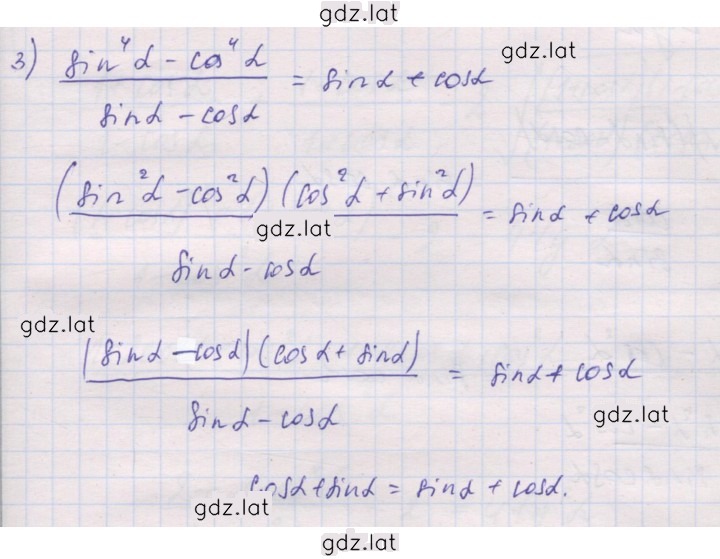 gdz.lat
3) (sin⁴α − cos⁴α)/(sinα − cosα) = sinα + cosα
gdz.lat
((sin²α − cos²α)(cos²α + sin²α))/(sinα − cosα) = sinα + cosα
gdz.lat
gdz.lat
((sinα − cosα)(cosα + sinα))/(sinα − cosα) = sinα + cosα
gdz.lat
cosα + sinα = sinα + cosα.
gdz.lat
gdz.lat